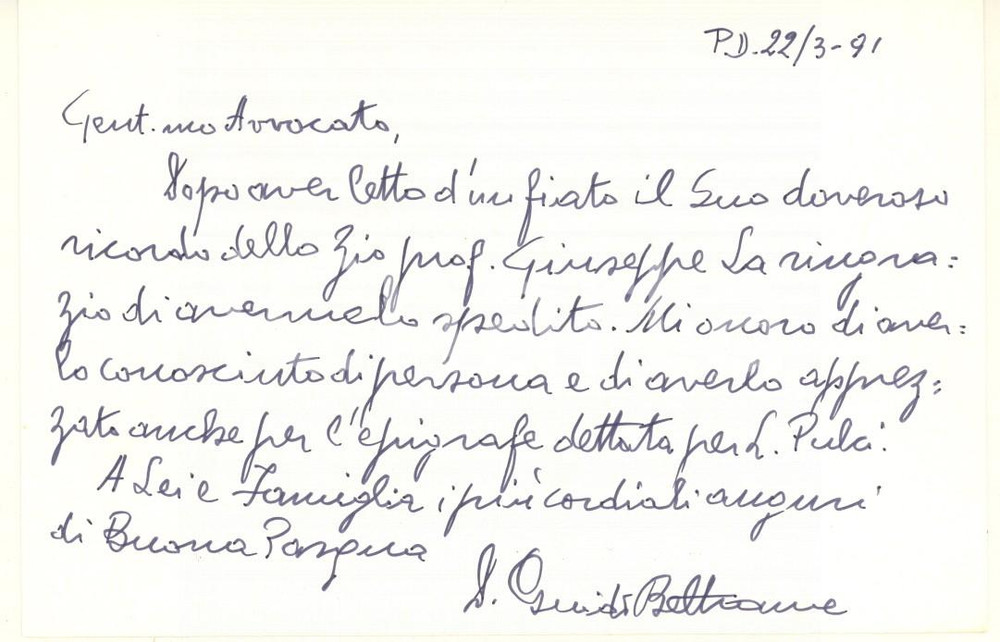 PD. 22/3-91
Gent.mo Avvocato,
Dopo aver letto d'un fiato il Suo doveroso
ricordo dello Zio prof. Giuseppe La ringra=
zio di avermelo spedito. Mi onoro di aver=
lo conosciuto di persona e di averlo apprez=
zato anche per l'epigrafe dettata per L. Pulci.
A Lei e Famiglia i più cordiali auguri
di Buona Pasqua
Guidi Beltrame